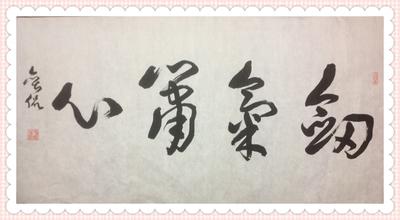 劍氣簫心